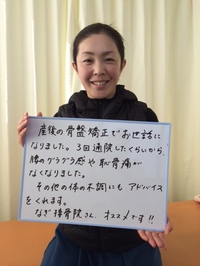 産後の骨盤矯正でお世話に
なりました。3回通院したくらいから、
腰のグラグラ感や恥骨痛が
なくなりました。
その他の体の不調にも アドバイス
をくれます。
なぎ接骨院さん、オススメです!!